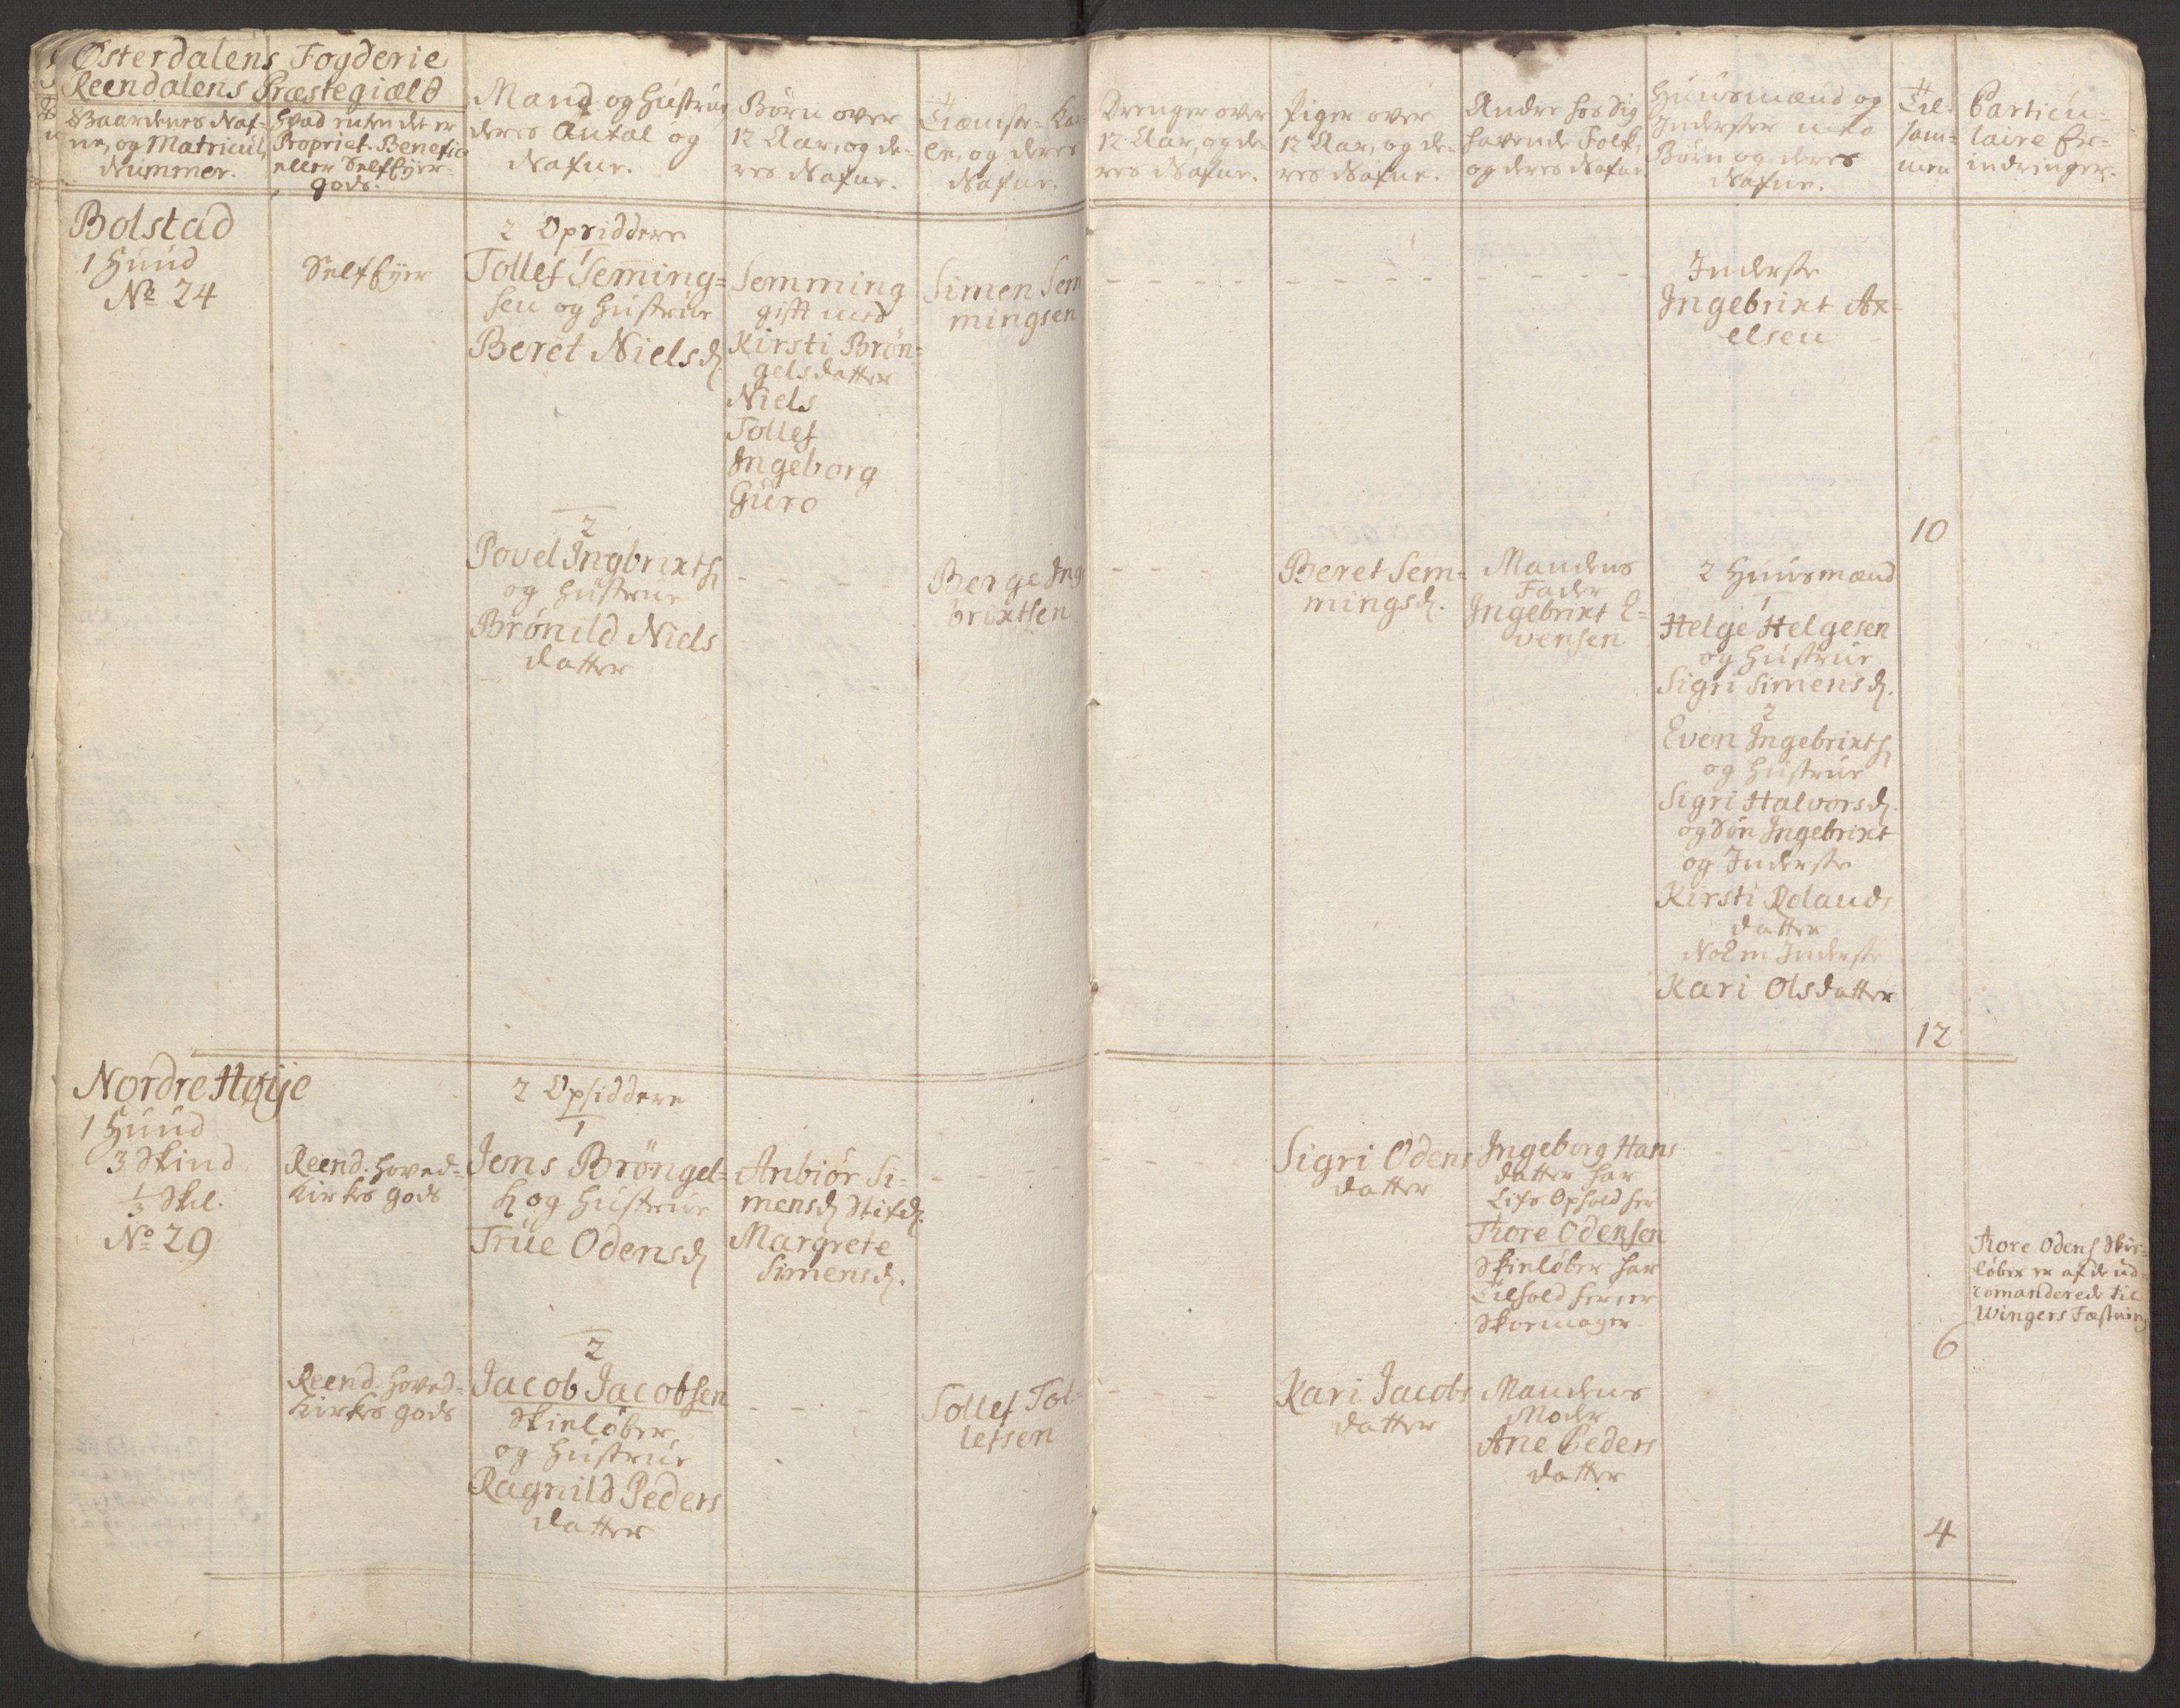 Østerdalens Fogderie
Reendalens Præstegiæld
Gaardenes Naf-
ne, og Matricul,
Nummer.
Hvad enten det er
Propriet. Benefic
eller Selfeyer-
gods.
Mand og Hustrue
deres Antal og
Nafne.
Børn over
12 Aar, og de-
res Nafne.
Tienste-Kar-
le, og deres
Nafne.
Drenger over
12 Aar, og de-
res Nafne.
Piger over
12 Aar, og de-
res Nafne.
Andre hos sig
havende Folk,
og deres Nafne
Huusmænd og
Inderster med
Børn og deres
Nafne.
Til-
sam-
men
Particu-
laire Er-
indringer.
Bolstad
1 Huud
No 24
Selfeyer
2 Opsiddere
1
Tollef Seming=
sen og Hustrue
Beret Nielsd.
Semming
gift med
Kirsti Brøn=
gelsdatter
Niels
Tollef
Ingeborg
Guro
Simen Sem
mingsen
Inderste
Ingebrixt Ax-
elsen
10
2
Povel Ingbrixts.
og Hustrue
Brønild Niels
datter
Berge Ing
brixtsen
Beret Sem=
mingsd.
Mandens
Fader
Ingebrixt E=
vensen
2 Huusmænd
1
Helge Helgesen
og Hustrue
Sigri Simensd.
2
Even Ingebrixts.
og Hustrue
Sigri Halvorsd.
og Søn Ingebrixt
og Inderste
Kirsti Rolands
datter
Nok en Inderste
Kari Olsdatter
12
Nordre Høije
1 Huud
3 Skind
1/3 Skil.
No 29
Reend. Hoved-
Kirkes gods
2 Opsiddere
1
Jens Brøngel=
s. og Hustrue
True Odensd.
Anbiør Si-
mensd. Stifd.
Margrete
Simensd.
Sigri Odens
datter
Ingeborg Hans
datter har
Lifs Ophold her
Tore Odensen
Skieløber har
Tilhold her, er
Skoemager
Tore Odens. Skie-
løber er af de ud-
comanderede til
Wingers Fæstning
6
2
Reend. Hoved-
Kirkes gods
Jacob Jacobsen
Skieløber,
og Hustrue
Ragnild Peders
datter
Tollef Tol-
lefsen
Kari Jacobs
datter
Mandens
Moder
Ane Peders
datter
4